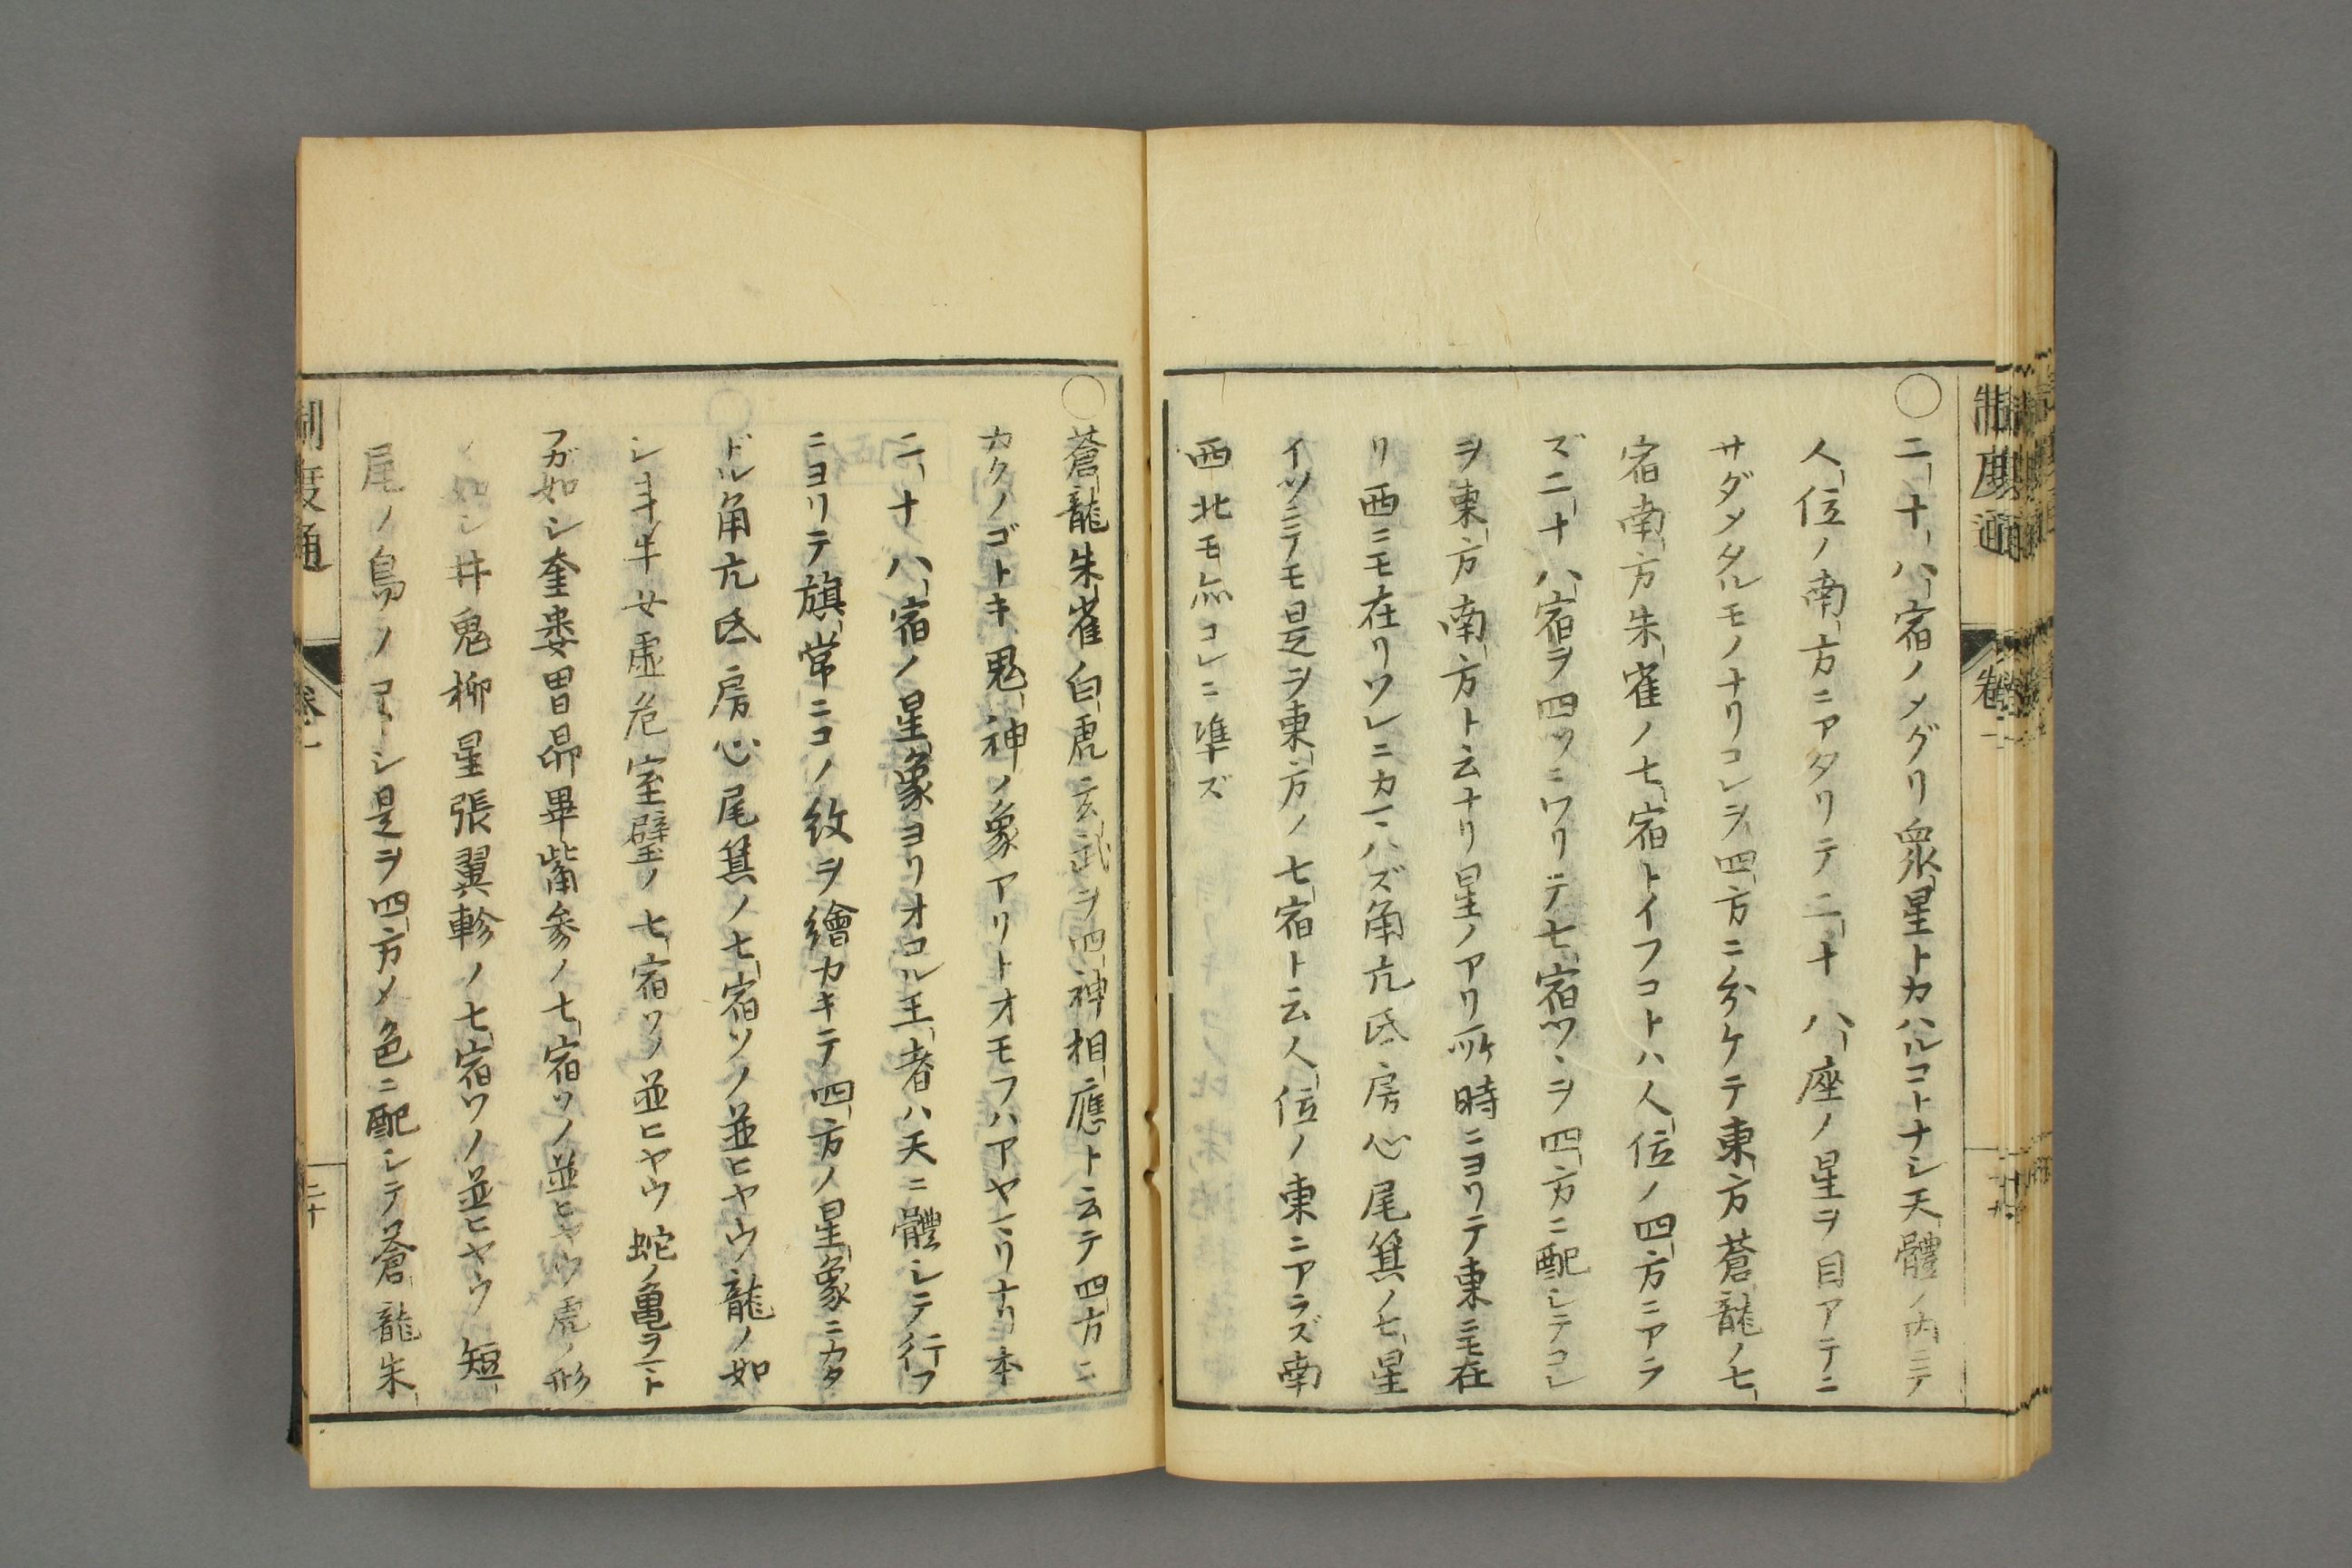 制度通
卷一
十九
○二十八宿ノメグリ衆星トカハルコトナシ天體ノ内ニテ
人位ノ南方ニアタリテ二十八座ノ星ヲ目アテニ
サダメタルモノナリコレヲ四方ニ分ケテ東方蒼龍ノ七
宿南方朱雀ノ七宿トイフコトハ人位ノ四方ニアラ
ズ二十八宿ヲ四ツニワリテ七宿ツヽヲ四方ニ配シテコレ
ヲ東方南方ト云ナリ星ノアリ所時ニヨリテ東ニモ在
リ西ニモ在リソレニカヽハズ角亢氐房心尾箕ノ七星
イツニテモ是ヲ東方ノ七宿ト云人位ノ東ニアラズ南
西北モ亦コレニ準ズ
○蒼龍朱雀白虎玄武ヲ四神相應ト云テ四方ニ
カクノゴトキ鬼神ノ象アリトオモフハアヤマリナリ本
二十八宿ノ星象ヨリオコル王者ハ天ニ體シテ行フ
ニヨリテ旗常ニコノ紋ヲ繪カキテ四方ノ星象ニカタ
ドル角亢氐房心尾箕ノ七宿ソノ並ヒヤウ龍ノ如
シ斗牛女虛危室壁ノ七宿ソノ並ヒヤウ蛇ノ亀ヲマト
フガ如シ奎婁胃昴畢觜参ノ七宿ソノ並ヒヤウ虎ノ形
ノ如シ井鬼柳星張翼軫ノ七宿ソノ並ヒヤウ短
尾ノ鳥ノコトシ是ヲ四方ノ色ニ配シテ蒼龍朱
制度通
卷一
二十